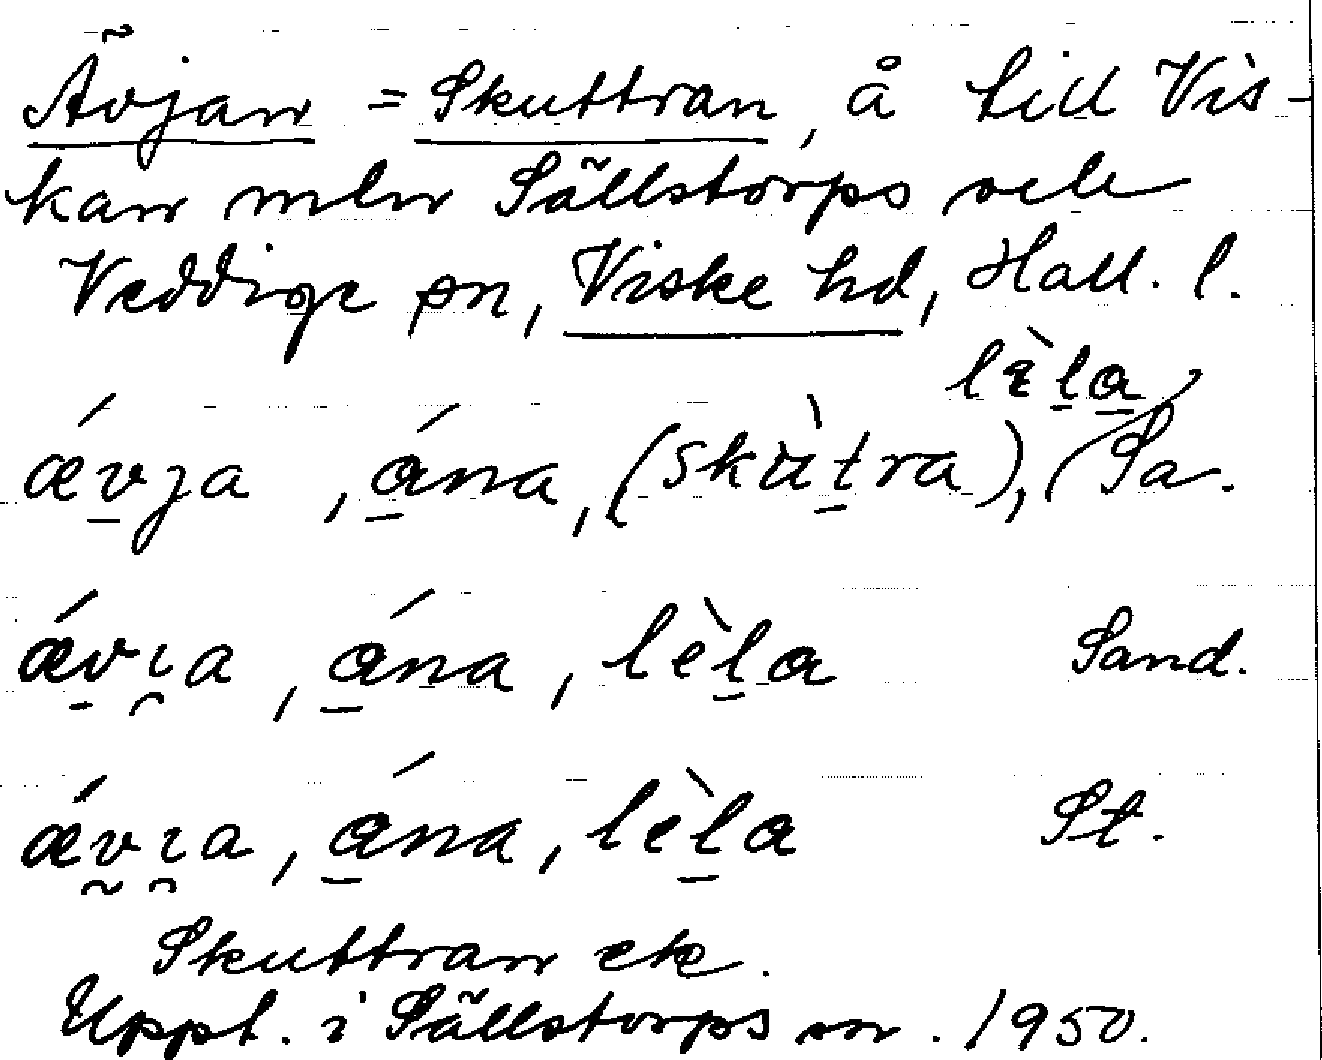 Ävjan = Skuttran, å till Vis-
kan mln Sällstorps och
Veddige sn, Viske hd, Hall. l.
lὲla
ǽvja, ána, (skùtra), Sa.
ǽvıa, ána, lèla Sand.
ǽvıa, ána, lèla St.
Skuttran ek.
Uppt. i Sällstorps sn. 1950.